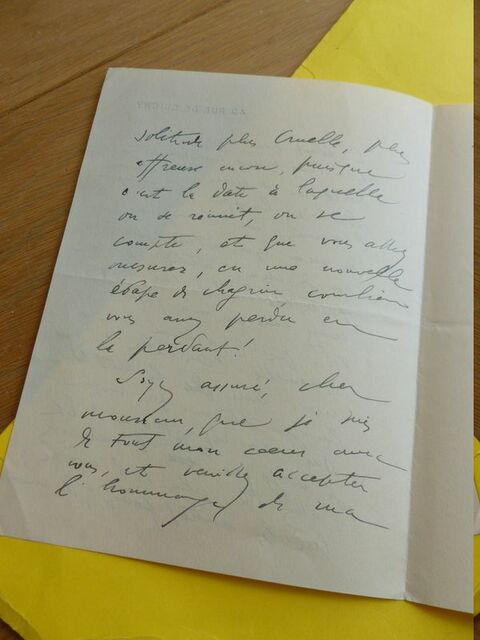 solitude plus cruelle, plus
affreuse encore, puisque
c'est la date à laquelle
on se réunit, on se
compte, et que vous allez
mesurer, en une nouvelle
étape de chagrin, combien
vous avez perdu en
la perdant!
Soyez assuré, cher
monsieur, que je suis
de tout mon coeur avec
vous, et veuillez accepter
l'hommage de ma